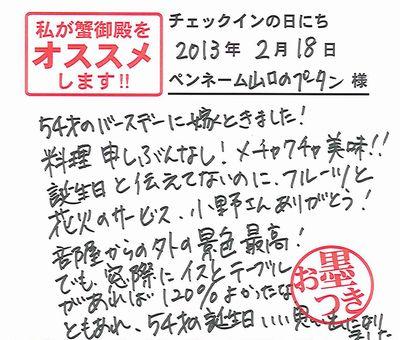 私が蟹御殿を
オススメ
します!!
チェックインの日にち
2013年 2月 18日
ペンネーム 山口のプータン 様
54才のバースデーに嫁ときました!
料理 申しぶんなし!メチャクチャ美味!!
誕生日と伝えてないのに、フルーツと
花火のサービス、小野さんありがとう!
部屋からの外の景色 最高!
でも、窓際にイスとテーブル
があれば120%よかったな
ともあれ、54才の誕生日いい思い出になり
ました
お墨つき